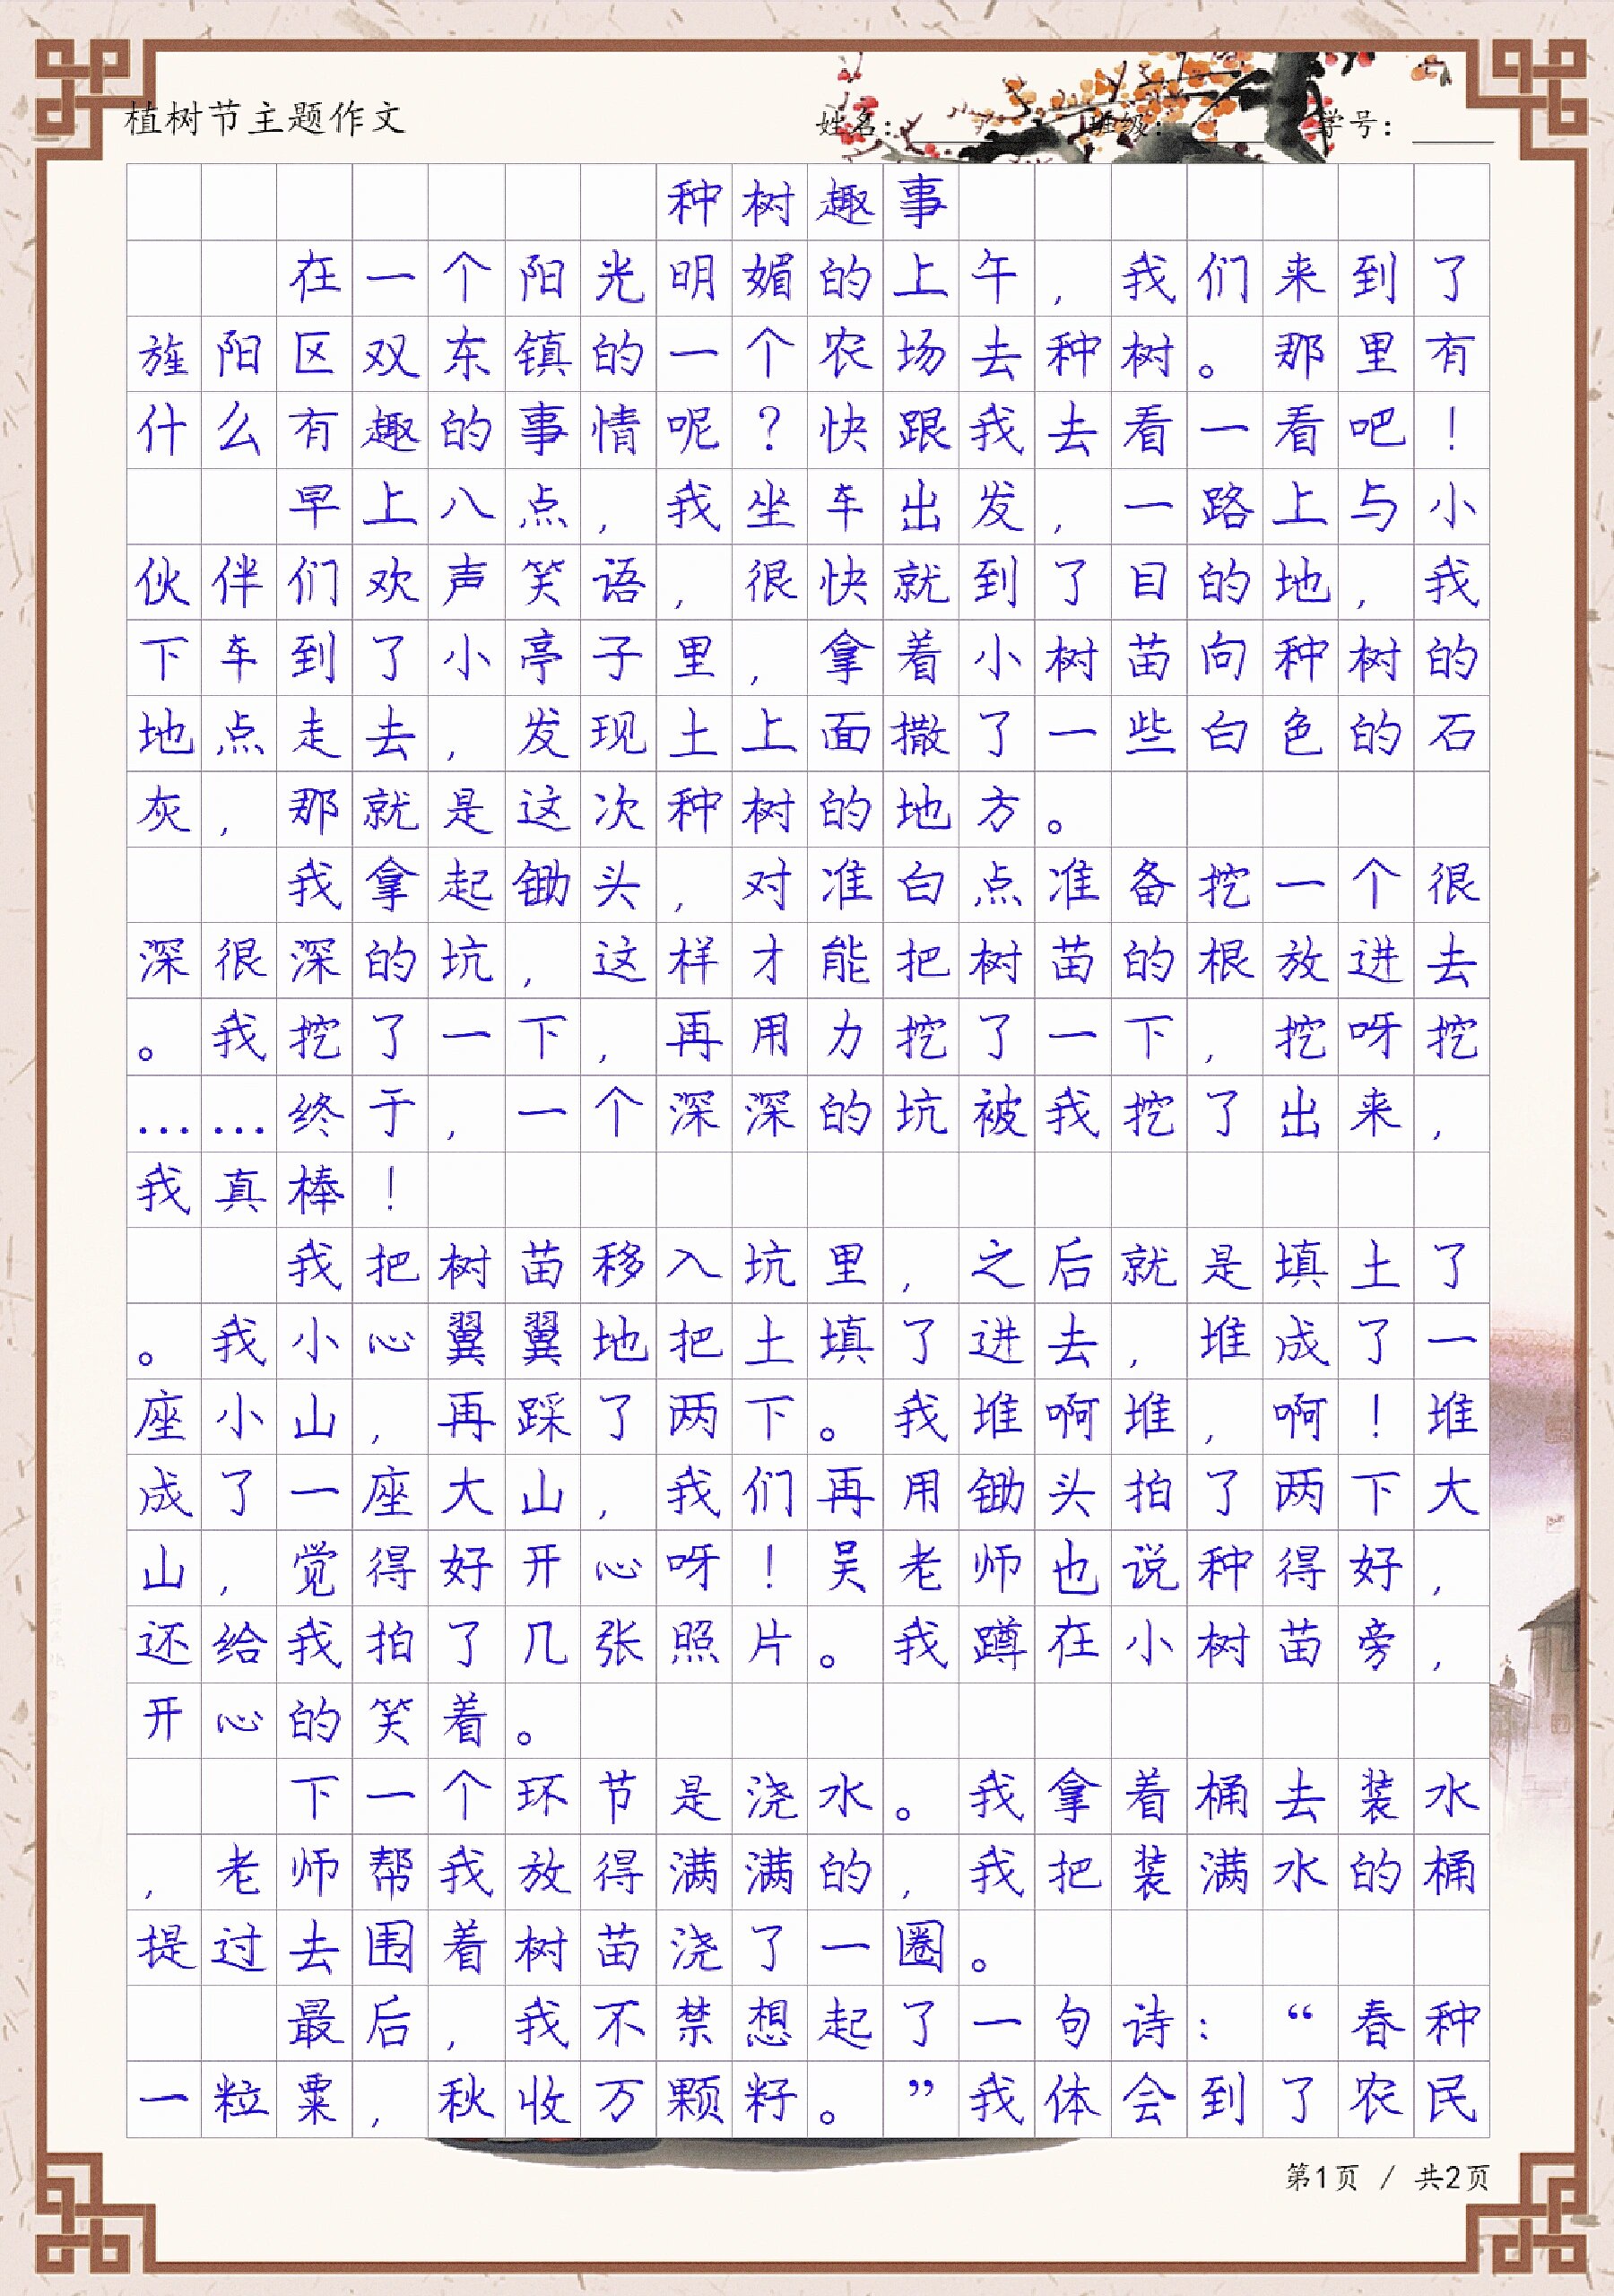 植树节主题作文 姓名: 班级: 学号:
种树趣事
在一个阳光明媚的上午，我们来到了
旌阳区双东镇的一个农场去种树。那里有
什么有趣的事情呢？快跟我去看一看吧！
早上八点，我坐车出发，一路上与小
伙伴们欢声笑语，很快就到了目的地，我
下车到了小亭子里，拿着小树苗向种树的
地点走去，发现土上面撒了一些白色的石
灰，那就是这次种树的地方。
我拿起锄头，对准白点准备挖一个很
深很深的坑，这样才能把树苗的根放进去
。我挖了一下，再用力挖了一下，挖呀挖
……终于，一个深深的坑被我挖了出来，
我真棒！
我把树苗移入坑里，之后就是填土了
。我小心翼翼地把土填了进去，堆成了一
座小山，再踩了两下。我堆啊堆，啊！堆
成了一座大山，我们再用锄头拍了两下大
山，觉得好开心呀！吴老师也说种得好，
还给我拍了几张照片。我蹲在小树苗旁，
开心的笑着。
下一个环节是浇水。我拿着桶去装水
，老师帮我放得满满的，我把装满水的桶
提过去围着树苗浇了一圈。
最后，我不禁想起了一句诗：“春种
一粒粟，秋收万颗籽。”我体会到了农民
第1页 / 共2页